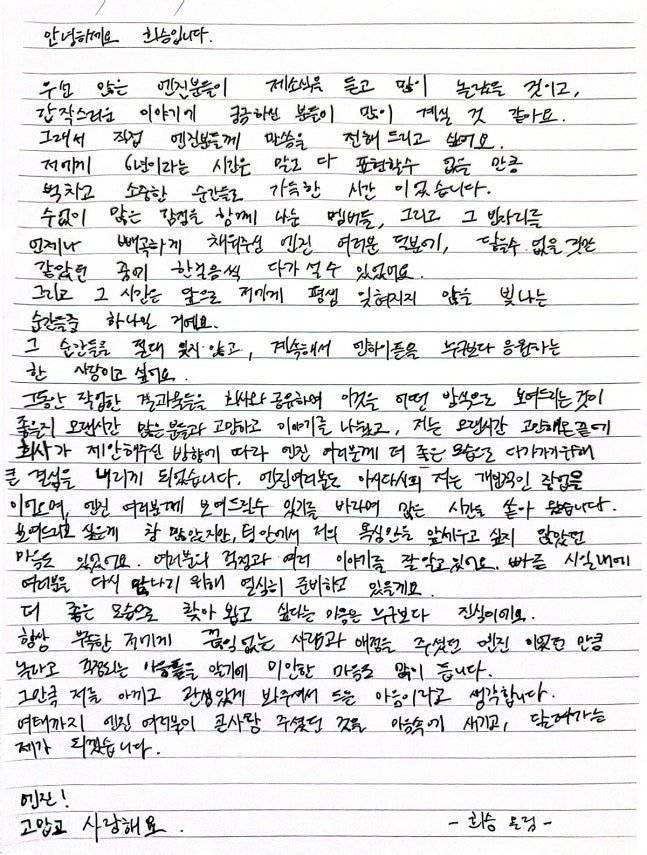 안녕하세요 희승입니다.
우선 많은 엔진분들이 제소식을 듣고 많이 놀랐을 것이고,
갑작스러운 이야기에 궁금하신 분들이 많이 계실 것 같아요.
그래서 직접 엔진분들께 말씀을 전해 드리고 싶어요.
저에게 6년이라는 시간은 말로 다 표현할수 없을 만큼
벅차고 소중한 순간들로 가득한 시간 이었습니다.
수없이 많은 감정을 함께 나눈 멤버들, 그리고 그 빈자리를
언제나 빼곡하게 채워주신 엔진 여러분 덕분에, 닿을수 없을 것만
같았던 꿈에 한걸음씩 다가 설 수 있었어요.
그리고 그 시간은 앞으로 저에게 평생 잊혀지지 않을 빛나는
순간들중 하나일 거예요.
그 순간들을 절대 잊지 않고, 계속해서 엔하이픈을 누구보다 응원하는
한 사람이고 싶어요.
그동안 작업한 결과물들을 회사와 공유하며 이것을 어떤 방식으로 보여드리는것이
좋을지 오랜시간 많은분들과 고민하고 이야기를 나눴고, 저는 오랜시간 고민해온끝에
회사가 제안해주신 방향에 따라 엔진 여러분께 더 좋은모습으로 다가가기위해
큰 결심을 내리게 되었습니다. 엔진여러분도 아시다시피 저는 개인적인 작업을
이어오며, 엔진 여러분께 보여드릴수 있기를 바라며 많은 시간을 쏟아 왔습니다.
보여드리고 싶은게 참 많았지만, 팀 안에서 저의 욕심만을 앞세우고 싶지 않았던
마음도 있었어요. 여러분의 걱정과 여러 이야기를 잘 알고있어요. 빠른 시일내에
여러분을 다시 만나기 위해 열심히 준비하고 있을게요.
더 좋은 모습으로 찾아 뵙고 싶다는 마음은 누구보다 진심이에요.
항상 부족한 저에게 끊임 없는 사랑과 애정을 주셨던 엔진 이었던 만큼
놀라고 걱정되는 마음들을 알기에 미안한 마음도 많이 듭니다.
그만큼 저를 아끼고 관심있게 봐주셔서 드는 마음이라고 생각합니다.
여태까지 엔진 여러분이 큰사랑 주셨던 것을 마음속에 새기고, 달려가는
제가 되겠습니다.
엔진!
고맙고 사랑해요.
- 희승 드림 -